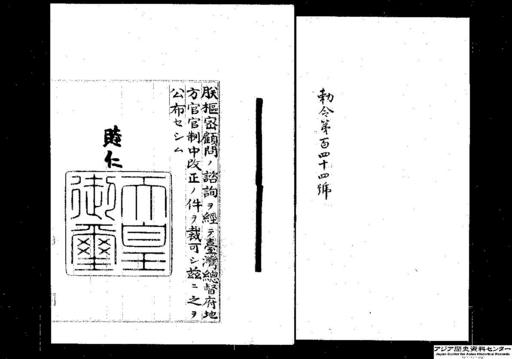 勅令第百四十四號
朕樞密顧問ノ諮詢ヲ經テ臺灣總督府地
方官官制中改正ノ件ヲ裁可シ茲ニ之ヲ
公布セシム
睦仁
天皇
御璽
アジア歴史資料センター
Japan Center for Asian Historical Records